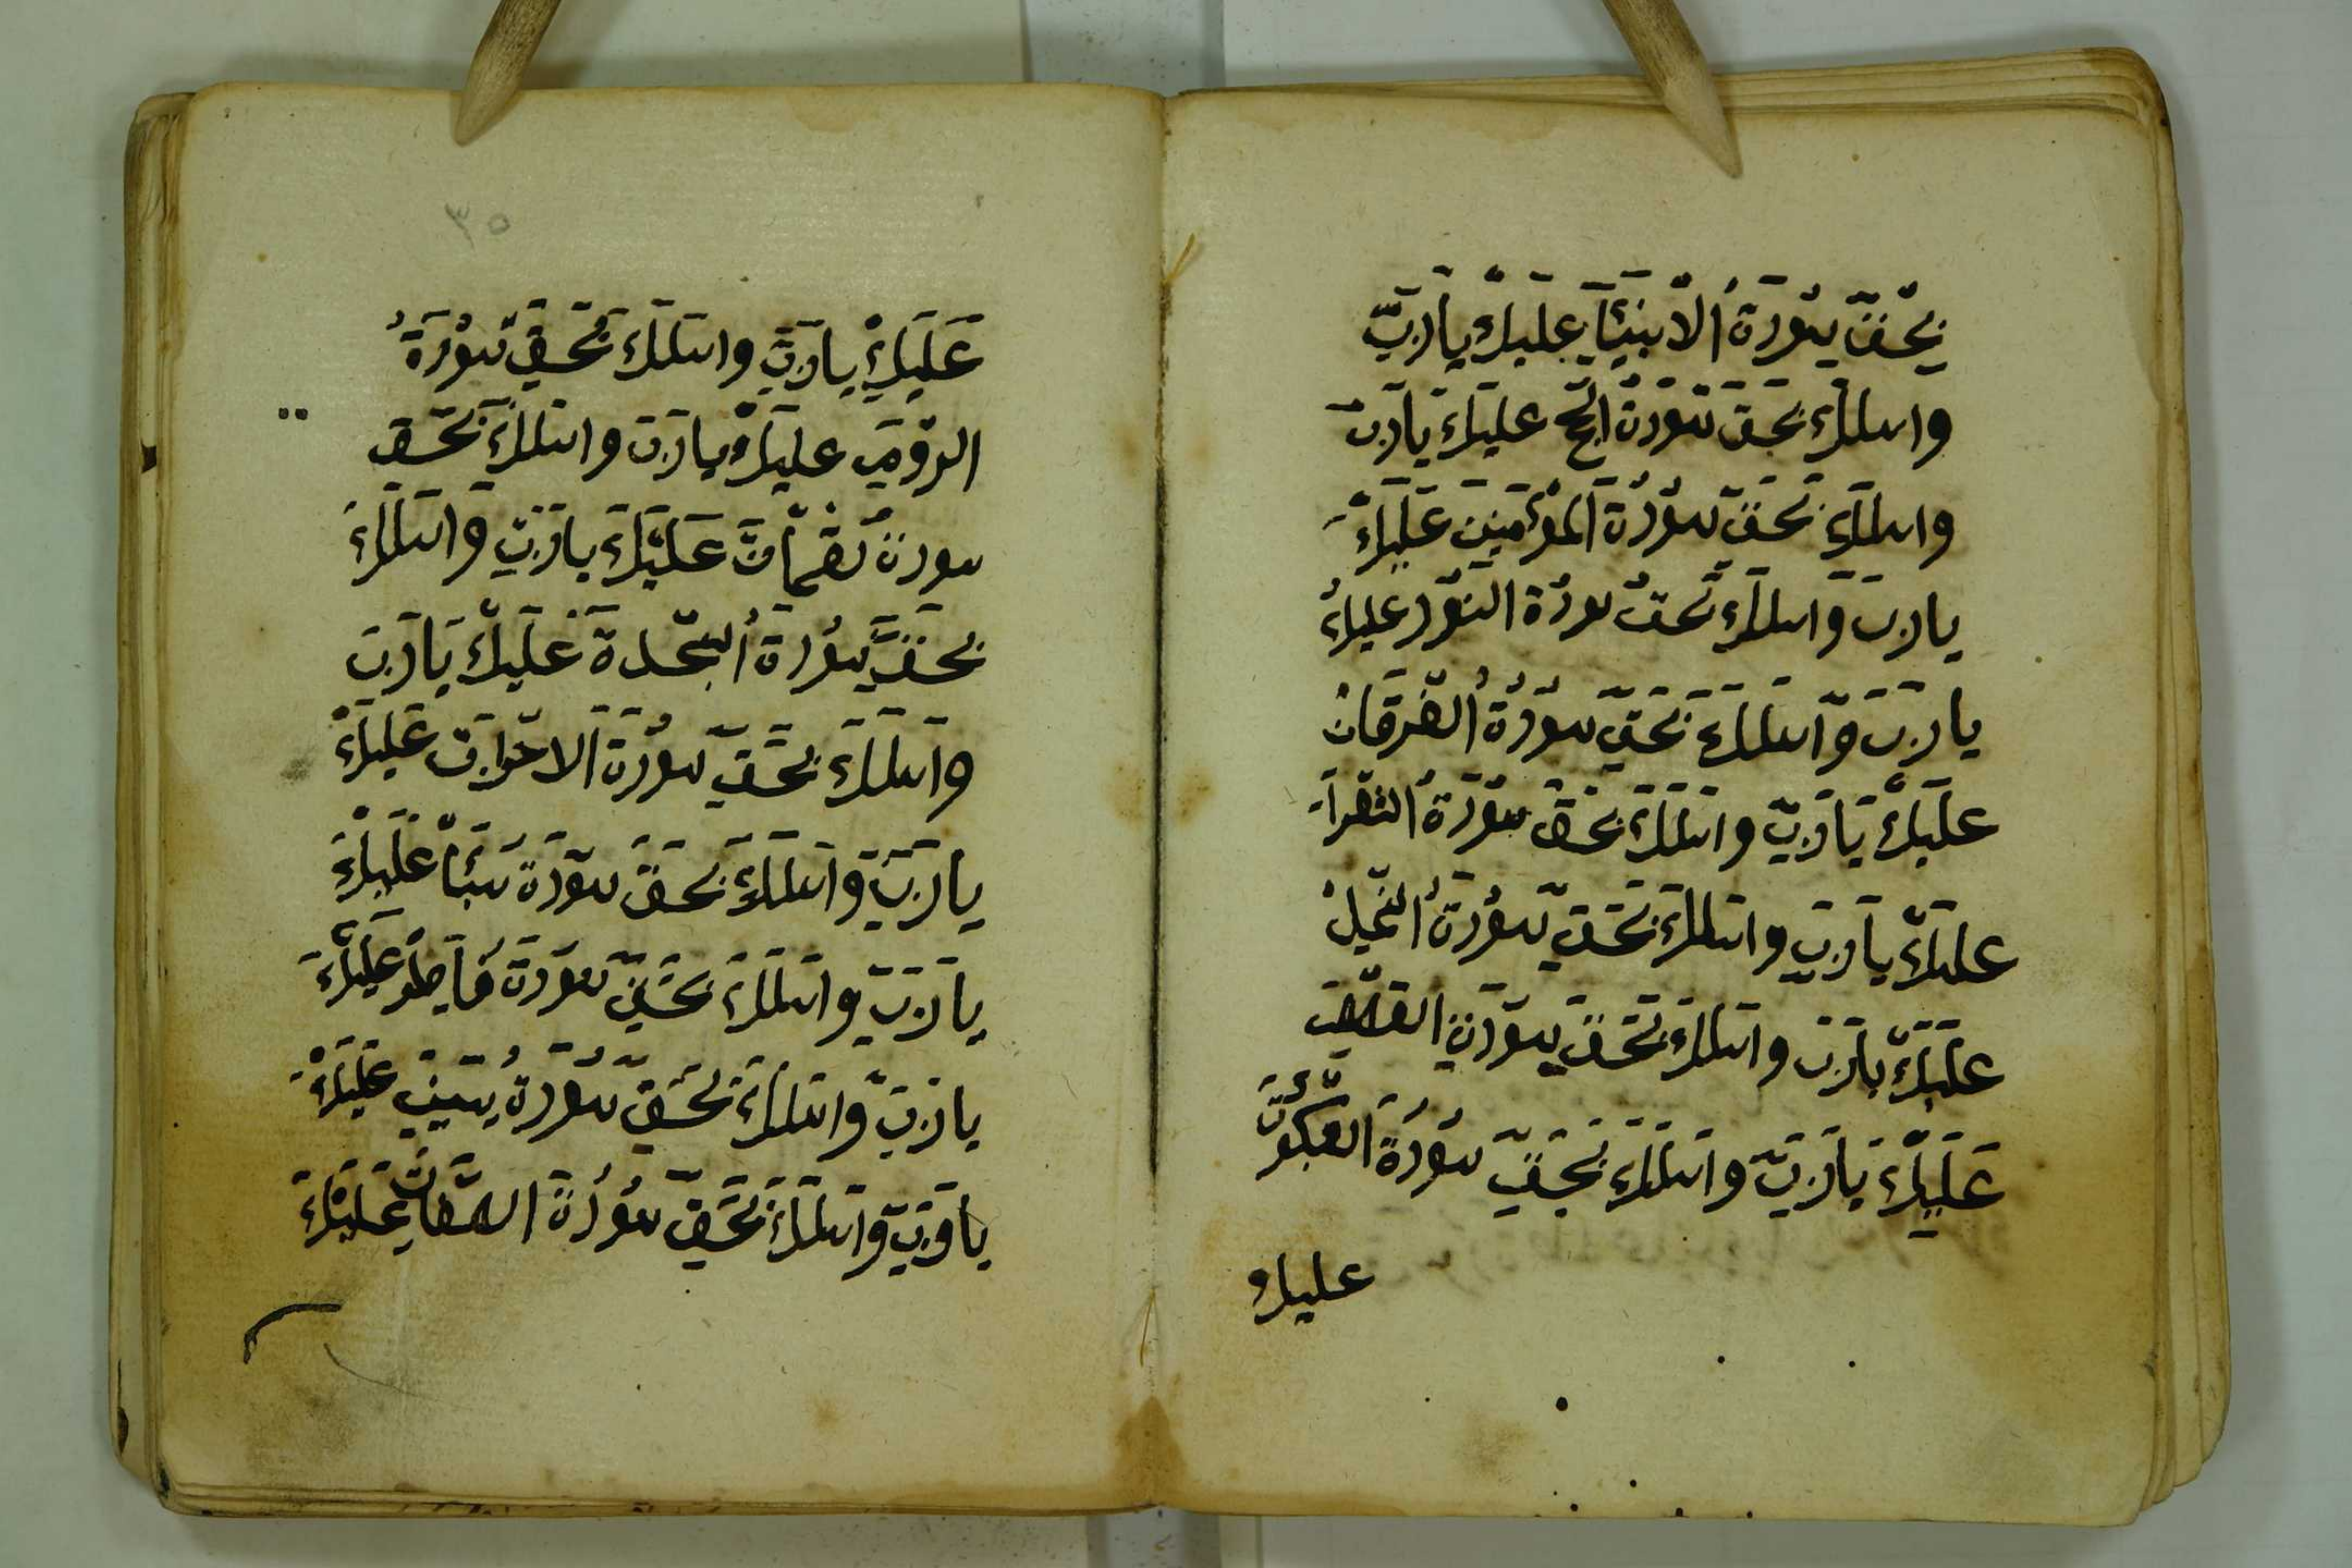 بِحَقِّ سُورَةُ الْانبِيَآءِ عَلَيْكَ يَارَبِّ
واسالك بَحق سُورَةُ الحج عليكَ يارب
واسالك بحَقِّ سُورُةَ المؤمنِين عَلَيْكَ
يارب واسالك بحق سورُة النُور عليكُ
يارب وَّاسالك بحَقِّ سُورُةُ الفُرقَانْ
عليكْ يَارَبِّ واسالكَ بحق سُورَةُ الشعرآ
عليكَ يارَبِّ واسالكَ بحَقِّ سُورَةُ النمل
عليكَ يارَب واسالك بحَقِّ سورَةِ القصص
عَلَيْكَ يَارَبِّ واسالكَ بحَقِّ سُورُةَ العنكبُوت
عليك
٣٥
عَلَيَكْ يارَبِّ واسالكَ بحَقِّ سُورَةُ
الروم عليكْ يارَب واسالكَ بحَق
سورة لقمان عَلَيْكَ يارَبِّ وَاسالكَ
بحَقِّ سُورَةُ السجدة عَلَيكْ يَارَب
واسالكَ بحَقِّ سُورَةَ الاحزاب عَليكْ
يارَبِّ وَاسالكَ بحَق سورَة سَبَأْ عَلَيكْ
يارَبِّ واسالكَ بحَقِّ سورَة فاطر عليكَ
يارَبِّ واسالكَ بحَقِّ سُورَةُ يسين عليكْ
يارَبِّ وَاسالكَ بحَقِّ سُورُة الصَّفات عليكَ